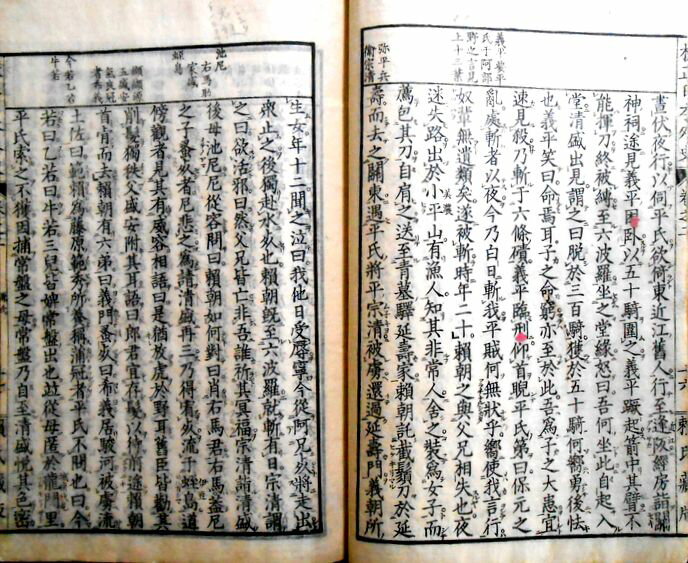 義平發平
氏于阿部
野之言見
上十三葉
彌平兵
衞宗清
晝伏夜行以伺平氏欲徇東近江舊人行至逢阪經房詣關
神祠遂見義平困卧以五十騎圍之義平蹶起箭中其臂不
能揮刀終被縛至六波羅坐之堂緣怒曰吾何坐此自起入
堂清盛出見謂之曰脱於三百騎獲於五十騎何嚮勇後怯
也義平笑曰命焉耳子之命窮亦至於此吾爲子之大患宜
速見殺乃斬于六條磧義平臨刑仰首睨平氏第曰保元之
亂處斬者以夜今乃白日斬我平賊何無狀乎嚮使我言行
奴輩無遺類矣遂被斬時年二十賴朝之與父兄相失也夜
迷失路出於小平山有漁人知其非常人舍之裝爲女子而
薦包其刀自肩之送至青墓驛延壽家賴朝託截鬚刀於延
壽而去之關東遇平氏將平宗清被虜還過延壽門義朝所
池尼
右馬助
家盛
蛭島
纐纈源
五盛安
氣良冠
者希義
今若乙若
牛若
生女年十二聞之泣曰我他日受辱寧今從阿兄死將走出
衆止之後獨赴水死也賴朝既至六波羅就斬有日宗清謂
之曰欲活邪曰然父兄皆亡非吾誰祈其冥福宗清請清盛
後母池尼尼從容問曰賴朝如何對曰肖右馬君右馬蓋尼
之子蚤死者尼悲之爲請清盛再三乃得宥死流于蛭島道
傍觀者見其有威容相語曰是猶放虎於野耳舊臣皆勸其
削髮獨秩父盛安附其耳語曰郎君宜存髮以待前途賴朝
首肯而去賴朝有六弟曰義門蚤死曰希義居駿河被虜流
土佐曰範賴爲藤原範秀所養稱蒲冠者平氏不問也曰今
若曰乙若曰牛若三兒皆婢常盤出也竝從母匿於龍門里
平氏索之不得因捕常盤之母常盤乃自至清盛悅其色密